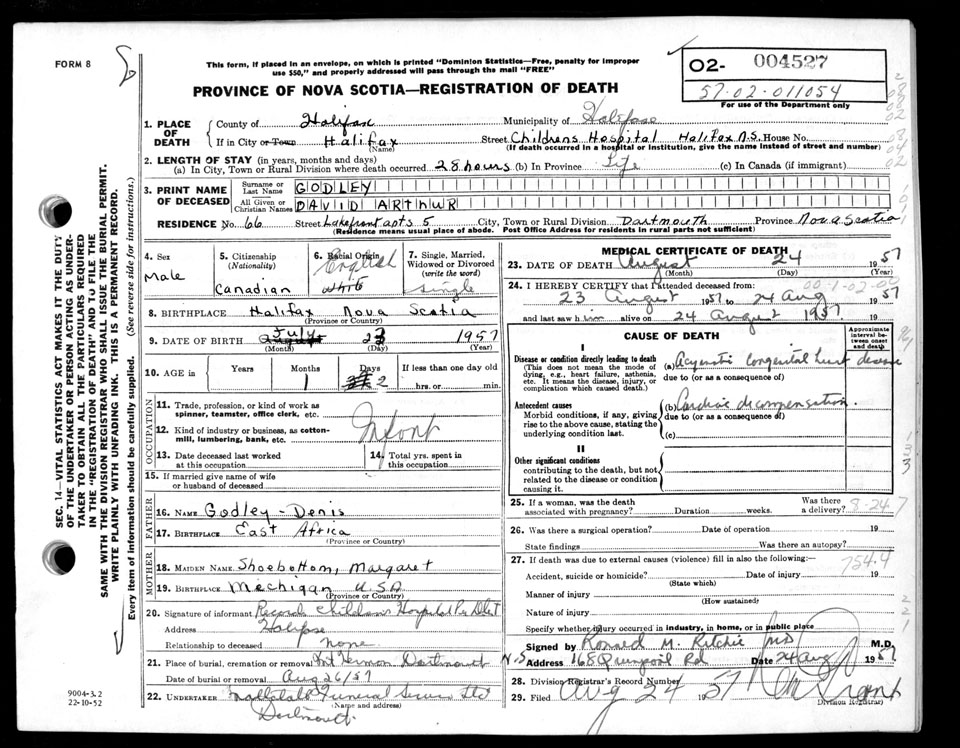 FORM 8
This form, if placed in an envelope, on which is printed "Dominion Statistics—Free, penalty for improper
use $50," and properly addressed will pass through the mail "FREE"
PROVINCE OF NOVA SCOTIA—REGISTRATION OF DEATH
O2- 004527
57-02-011054
For use of the Department only
1. PLACE OF DEATH
County of Halifax Municipality of Halifax
If in City or Town Halifax Street Childrens Hospital Halifax N.S. House No.
(Name) (If death occurred in a hospital or institution, give the name instead of street and number)
2. LENGTH OF STAY (in years, months and days)
(a) In City, Town or Rural Division where death occurred 28 hours (b) In Province Life (c) In Canada (if immigrant)
3. PRINT NAME OF DECEASED
Surname or Last Name GODLEY
All Given or Christian Names DAVID ARTHUR
RESIDENCE No. 66 Street Lakefront apts 5 City, Town or Rural Division Dartmouth Province Nova Scotia
(Residence means usual place of abode. Post Office Address for residents in rural parts not sufficient)
4. Sex
Male
5. Citizenship
(Nationality)
Canadian
6. Racial Origin
English
white
7. Single, Married, Widowed or Divorced
(write the word)
Single
8. BIRTHPLACE Halifax Nova Scotia
(Province or Country)
9. DATE OF BIRTH July 23 1957
(Month) (Day) (Year)
10. AGE in Years Months Days If less than one day old
1 2 hrs. or min.
OCCUPATION
11. Trade, profession, or kind of work as
spinner, teamster, office clerk, etc.
12. Kind of industry or business, as cotton-
mill, lumbering, bank, etc. Infant
13. Date deceased last worked
at this occupation
14. Total yrs. spent in
this occupation
15. If married give name of wife
or husband of deceased
FATHER
16. NAME Godley - Denis
17. BIRTHPLACE East Africa
(Province or Country)
MOTHER
18. MAIDEN NAME Shoebottom, Margaret
19. BIRTHPLACE Mechigan U.S.A
(Province or Country)
20. Signature of informant Records Childrens Hospital
Address Halifax
Relationship to deceased none
21. Place of burial, cremation or removal Mt Hermon Dartmouth
Date of burial or removal Aug 26/57
22. UNDERTAKER Funeral Ltd
(Name and address)
Dartmouth
MEDICAL CERTIFICATE OF DEATH
23. DATE OF DEATH August 24 1957
(Month) (Day) (Year)
24. I HEREBY CERTIFY that I attended deceased from:
00-1-02-00
23 August 1957 to 24 Aug 1957
and last saw him alive on 24 August 1957
CAUSE OF DEATH
Approximate interval between onset and death
I
Disease or condition directly leading to death
(This does not mean the mode of
dying, e.g., heart failure, asthenia,
etc. It means the disease, injury, or
complication which caused death.)
(a) congenital heart disease
due to (or as a consequence of)
Antecedent causes
Morbid conditions, if any, giving
rise to the above cause, stating the
underlying condition last.
(b) Cardiac decompensation.
due to (or as a consequence of)
(c)
II
Other significant conditions
contributing to the death, but not
related to the disease or condition
causing it.
25. If a woman, was the death
associated with pregnancy? Duration weeks. Was there a delivery?
8-24-7
26. Was there a surgical operation? Date of operation 19
State findings Was there an autopsy?
27. If death was due to external causes (violence) fill in also the following: 754.4
Accident, suicide or homicide? Date of injury 19
(State which)
Manner of injury
(How sustained)
Nature of injury
Specify whether injury occurred in industry, in home, or in public place
Signed by Ronald M. Ritchie MD M.D.
Address 168 Quinpool Rd Date 24 Aug 1957
28. Division Registrar's Record Number
29. Filed Aug 24 1957
Division Registrar
9004-3.2
22-10-52
SEC. 14—VITAL STATISTICS ACT MAKES IT THE DUTY
OF THE UNDERTAKER OR PERSON ACTING AS UNDER-
TAKER TO OBTAIN ALL THE PARTICULARS REQUIRED
IN THE "REGISTRATION OF DEATH" AND TO FILE THE
SAME WITH THE DIVISION REGISTRAR WHO SHALL ISSUE THE BURIAL PERMIT.
WRITE PLAINLY WITH UNFADING INK. THIS IS A PERMANENT RECORD.
Every item of information should be carefully supplied. (See reverse side for instructions.)